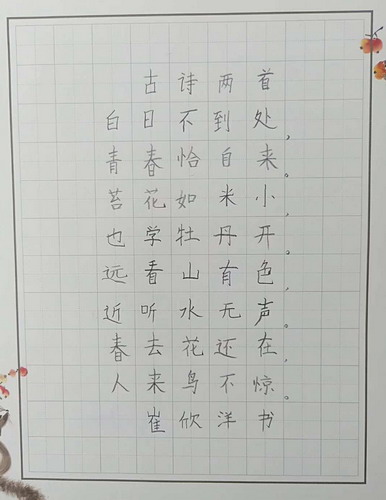 古诗两首
白日不到处，
青春恰自来。
苔花如米小，
也学牡丹开。
远看山有色，
近听水无声。
春去花还在，
人来鸟不惊。
崔欣洋书